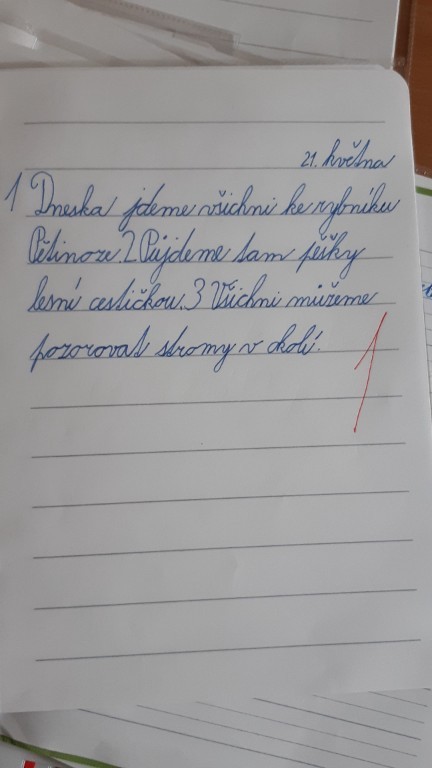 21. května
1 Dneska jdeme všichni ke rybníku
Pětinoze. 2 Půjdeme tam pěšky
lesní cestičkou. 3 Všichni můžeme
pozorovat stromy v okolí.
1